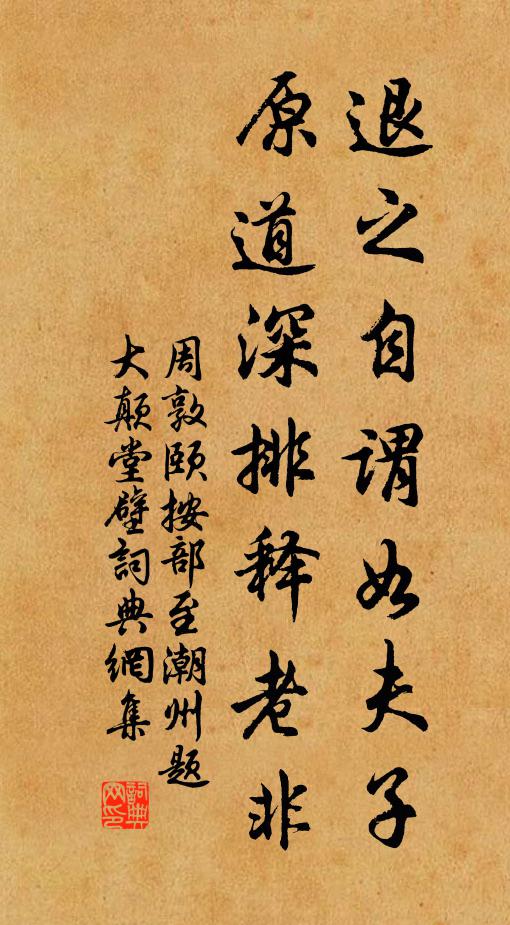 退之自谓如夫子
原道深排释老非
周敦颐按部至潮州题
大颠堂壁詞典網集
詞典网印